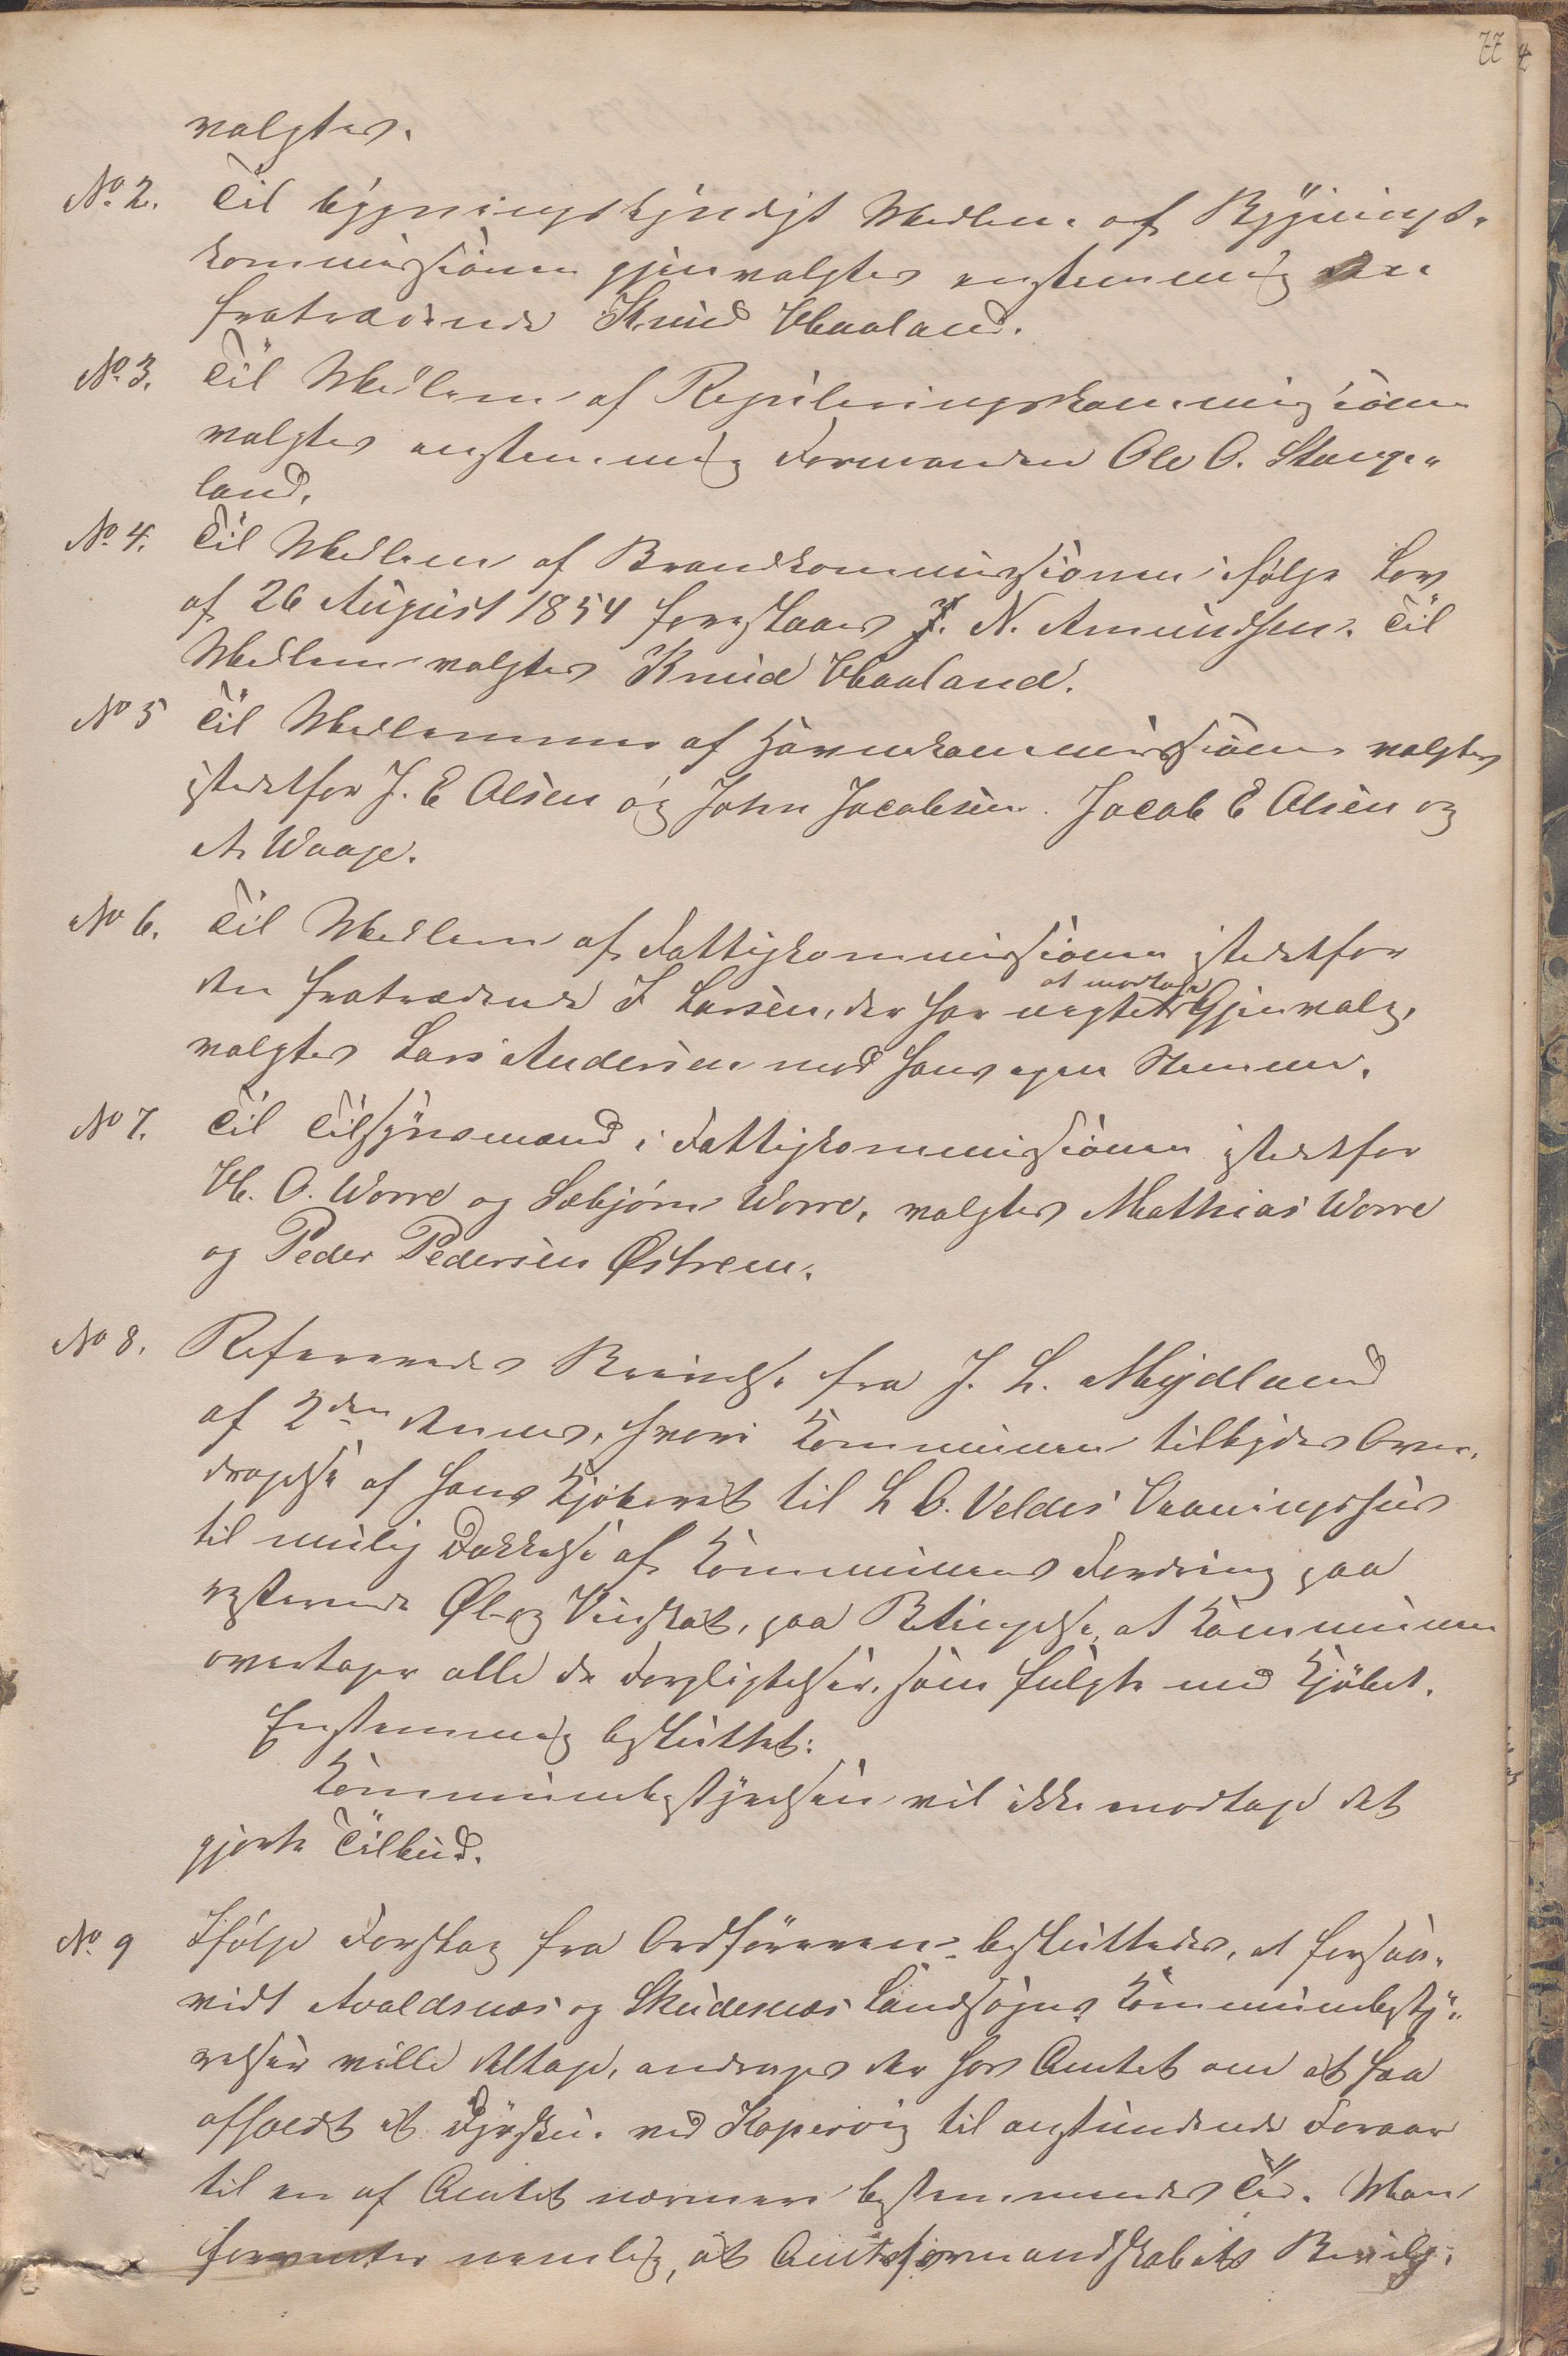 77
valgtes.
No. 2. Til bygningskyndigt Medlem af Bygnings-
kommissionen gjenvalgtes enstemmig den
fratrædende Knud Haaland.
No. 3. Til Medlem af Reguleringskommissionen
valgtes enstemmig Formanden Ole O. Stange-
land.
No. 4. Til Medlem af Brandkommissionen ifølge Lov
af 26 August 1854 foreslaaes J. N. Amundsen. Til
Medlem valgtes Knud Haaland.
No 5 Til Medlemmer af Havnekommissionen valgtes
istedetfor J. E Olsen og John Jacobsen. Jacob E Olsen og
A. Waage.
No 6. Til Medlem af Fattigkommissionen istedetfor
at modtage
den fratrædende I Larsen, der har negtet Gjenvalg,
valgtes Lars Andersen med hans egen Stemme.
No 7. Til Tilsynsmænd i Fattigkommissionen istedetfor
H. O. Worre og Sæbjørn Worre, valgtes Mathias Worre
og Peder Pedersen Østrem.
No 8. Refereredes Skrivelse fra J. L. Mydland
af 2den dennes, hvori Kommunen tilbydes Over-
dragelse af hans Kjøberet til L O. Veldes Vaaningshus
til mulig Dækkelse af Kommunens Fordring paa
resterende Øl- og Vinskat, paa Betingelse, at Kommunen
overtager alle de Forpligtelser, som fulgte med Kjøbet.
Enstemmig besluttet:
Kommunebestyrelsen vil ikke modtage det
gjorte Tilbud.
No. 9 Ifølge Forslag fra Ordføreren besluttedes, at forsaa-
vidt Avaldsnes og Skudesnes Landsogns Kommunebesty-
relser ville deltage, andrages der hos Amtet om at faa
afholdt et Dyrskue ved Kopervig til anstundende Foraar
til en af Amtet nærmere bestemmendes Tid. Man
forventer nemlig, at Amtsformandskabets Bevilg-